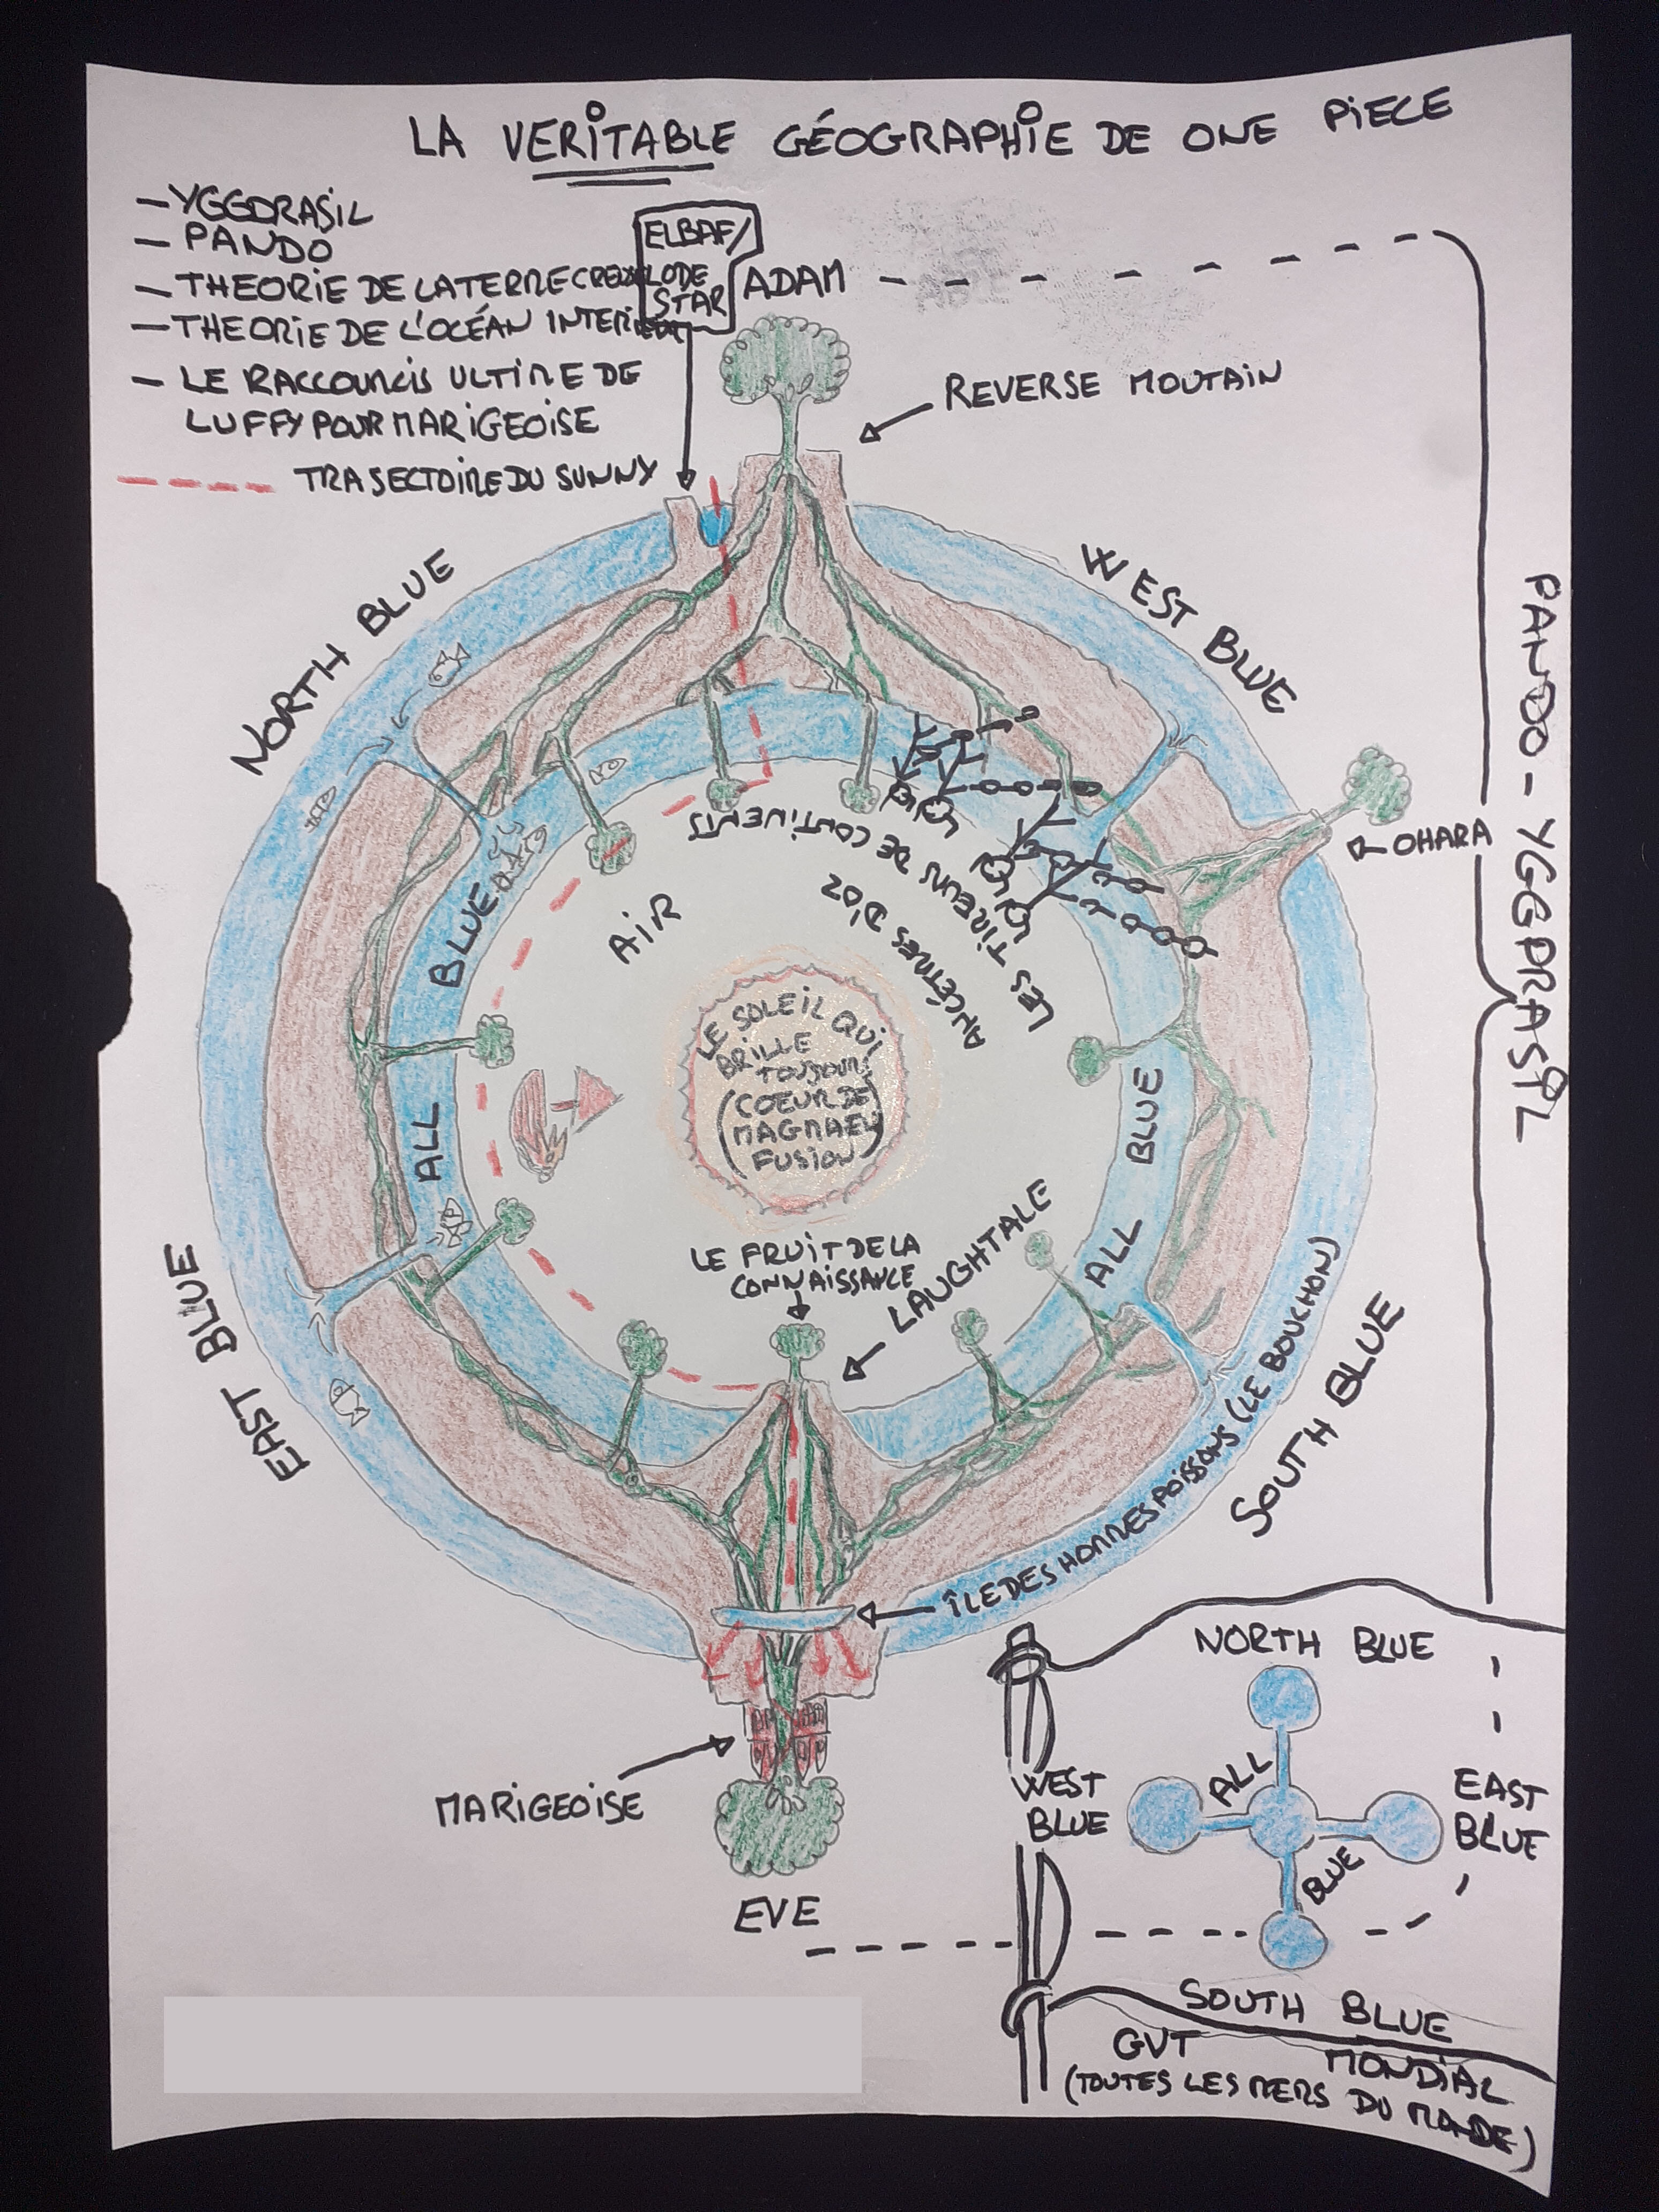 LA VERITABLE GÉOGRAPHIE DE ONE PIECE
- YGGDRASIL
- PANDO
- THEORIE DE LA TERRE CREUSE
- THEORIE DE L'OCÉAN INTERIEUR
- LE RACCOURCIS ULTIME DE
LUFFY POUR MARIGEOISE
TRASECTOIRE DU SUNNY
ELBAF/
LODE
STAR
ADAM
REVERSE MOUTAIN
NORTH BLUE
WEST BLUE
OHARA
PANDO - YGGDRASIL
LES TIREURS DE CONTINENTS
ANCÊTRES D'OZ
AIR
ALL BLUE
LE SOLEIL QUI
BRILLE
TOUJOURS
(COEUR DE
MAGMA EN
FUSION)
ALL BLUE
LE FRUIT DE LA
CONNAISSANCE
LAUGHTALE
EAST BLUE
SOUTH BLUE
ÎLE DES HOMMES POISSONS (LE BOUCHON)
MARIGEOISE
EVE
NORTH BLUE
WEST
BLUE
ALL
BLUE
EAST
BLUE
SOUTH BLUE
GVT MONDIAL
(TOUTES LES MERS DU MONDE)